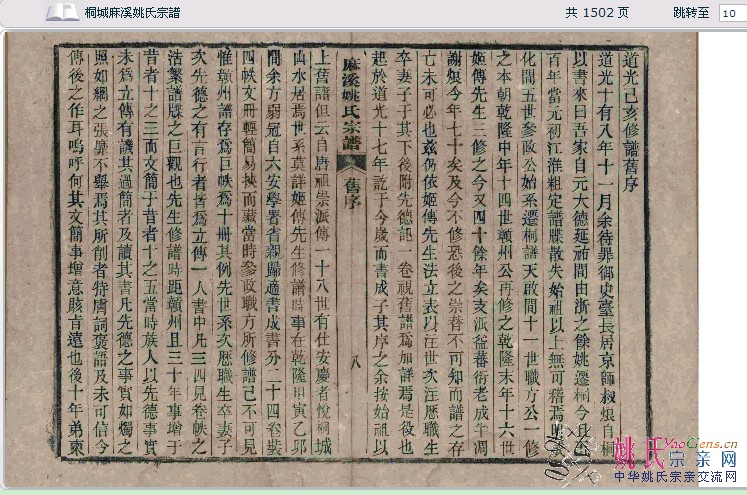 桐城麻溪姚氏宗譜
共 1502 页
跳转至
10
道光己亥修譜舊序
道光十有八年十一月余待罪御史臺長居京師叔烺自桐
以書來曰吾家自元大德延祐間由浙之餘姚遷桐今且五
百年當元初江淮粗定譜牒散失始祖以上無可稽焉
化間五世參政公始系遷桐譜天啟間十一世職方公一修
之本朝乾隆中年十四世贛州公再修之乾隆末年十六世
姬傳先生三修之今又四十餘年矣支派益蕃衍老成半凋
謝烺今年七十矣及今不修恐後之崇替不可知而譜之存
亡未可必也茲仍依姬傳先生法立表以注世次注歷職生
卒妻子于其下後附先德記一卷視舊譜為加詳焉是役也
起於道光十七年訖于今歲而書成子其序之余按始祖以
麻溪姚氏宗譜
舊序
八
上舊譜但云自唐祖崇派傳一十八世有仕安慶者悅桐城
山水居焉世系莫詳姬傳先生修譜時事在乾隆甲寅乙卯
間余方弱冠自六安學署省親歸適書成書分二十四卷裝
四帙文冊輕簡易挾而藏當時參政職方所修譜已不可見
惟贛州譜存為巨帙為十冊其例先世系次歷職生卒妻子
次先德之有言行者皆為立傳一人書中凡三四見卷帙之
浩繁譜牒之巨觀也先生修譜時距贛州且三十年事增于
昔者十之三而文簡于昔者十之五當時族人以先德事實
未為立傳有譏其過簡者及讀其書凡先德之事實如燭之
照如綱之張靡不舉焉其所創者特膚詞褒語及未可信今
傳後之作耳嗚呼何其文簡事增意賅肯遠也後十年弟柬
姚氏YaoGens.cn
宗亲网
中华姚氏宗亲交流网